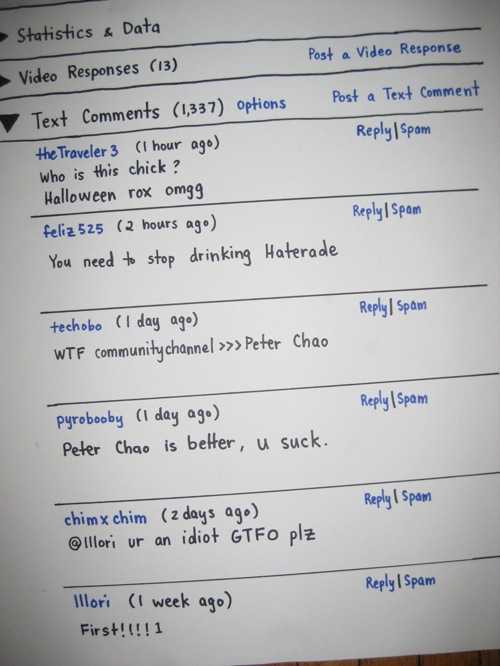 Statistics & Data
Video Responses (13) Post a Video Response
Text Comments (1,337) Options Post a Text Comment
theTraveler3 (1 hour ago) Reply|Spam
Who is this chick?
Halloween rox omgg
feliz525 (2 hours ago) Reply|Spam
You need to stop drinking Haterade
techobo (1 day ago) Reply|Spam
WTF communitychannel >>> Peter Chao
pyrobooby (1 day ago) Reply|Spam
Peter Chao is better, u suck.
chimxchim (2 days ago) Reply|Spam
@lllori ur an idiot GTFO plz
lllori (1 week ago) Reply|Spam
First!(!!!1